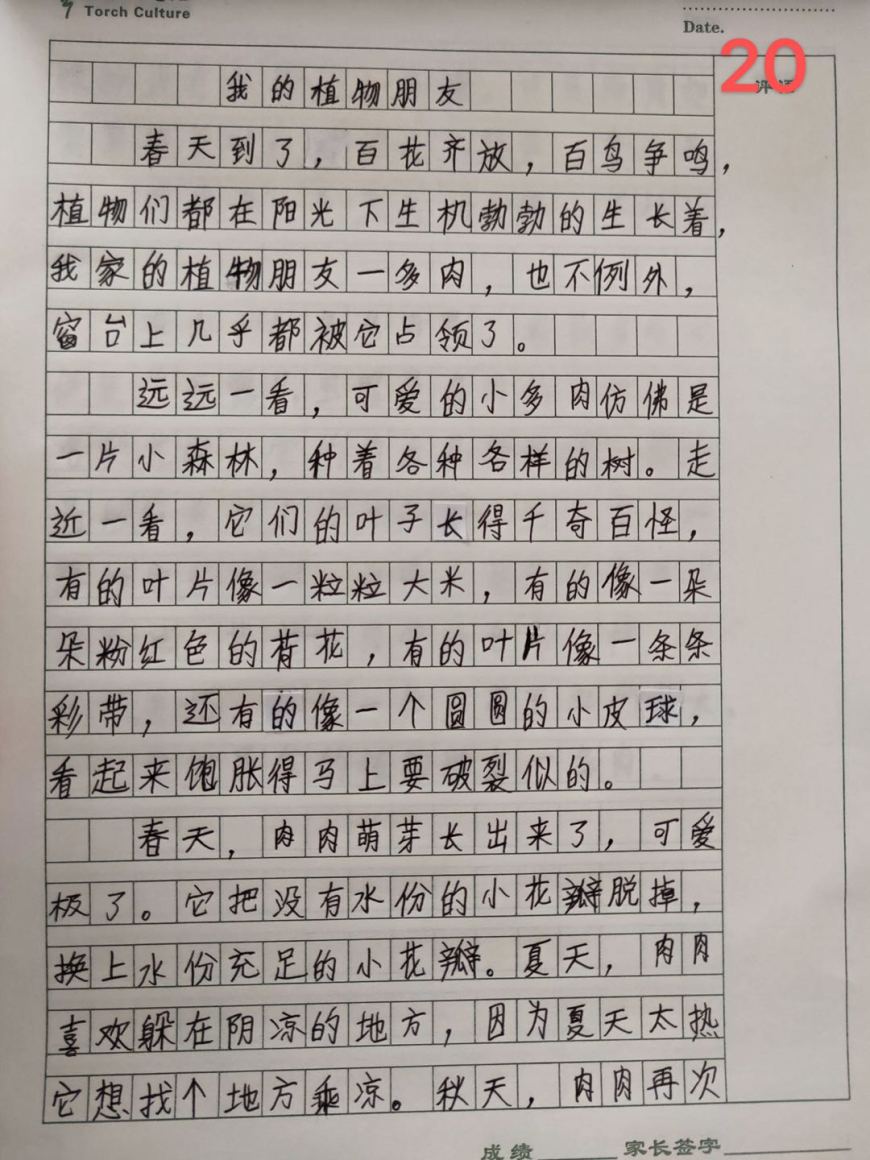 Torch Culture
Date.
20
我的植物朋友
春天到了，百花齐放，百鸟争鸣，
植物们都在阳光下生机勃勃的生长着，
我家的植物朋友一多肉，也不例外，
窗台上几乎都被它占领了。
远远一看，可爱的小多肉仿佛是
一片小森林，种着各种各样的树。走
近一看，它们的叶子长得千奇百怪，
有的叶片像一粒粒大米，有的像一朵
朵粉红色的荷花，有的叶片像一条条
彩带，还有的像一个圆圆的小皮球，
看起来饱胀得马上要破裂似的。
春天，肉肉萌芽长出来了，可爱
极了。它把没有水份的小花瓣脱掉，
换上水份充足的小花瓣。夏天，肉肉
喜欢躲在阴凉的地方，因为夏天太热
它想找个地方乘凉。秋天，肉肉再次
成绩 家长签字